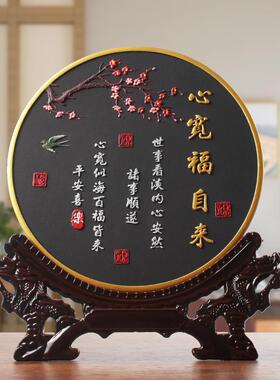 心寬福自来
世事看淡内心安然
諸事順遂
心寬似海百福皆来
平安喜樂